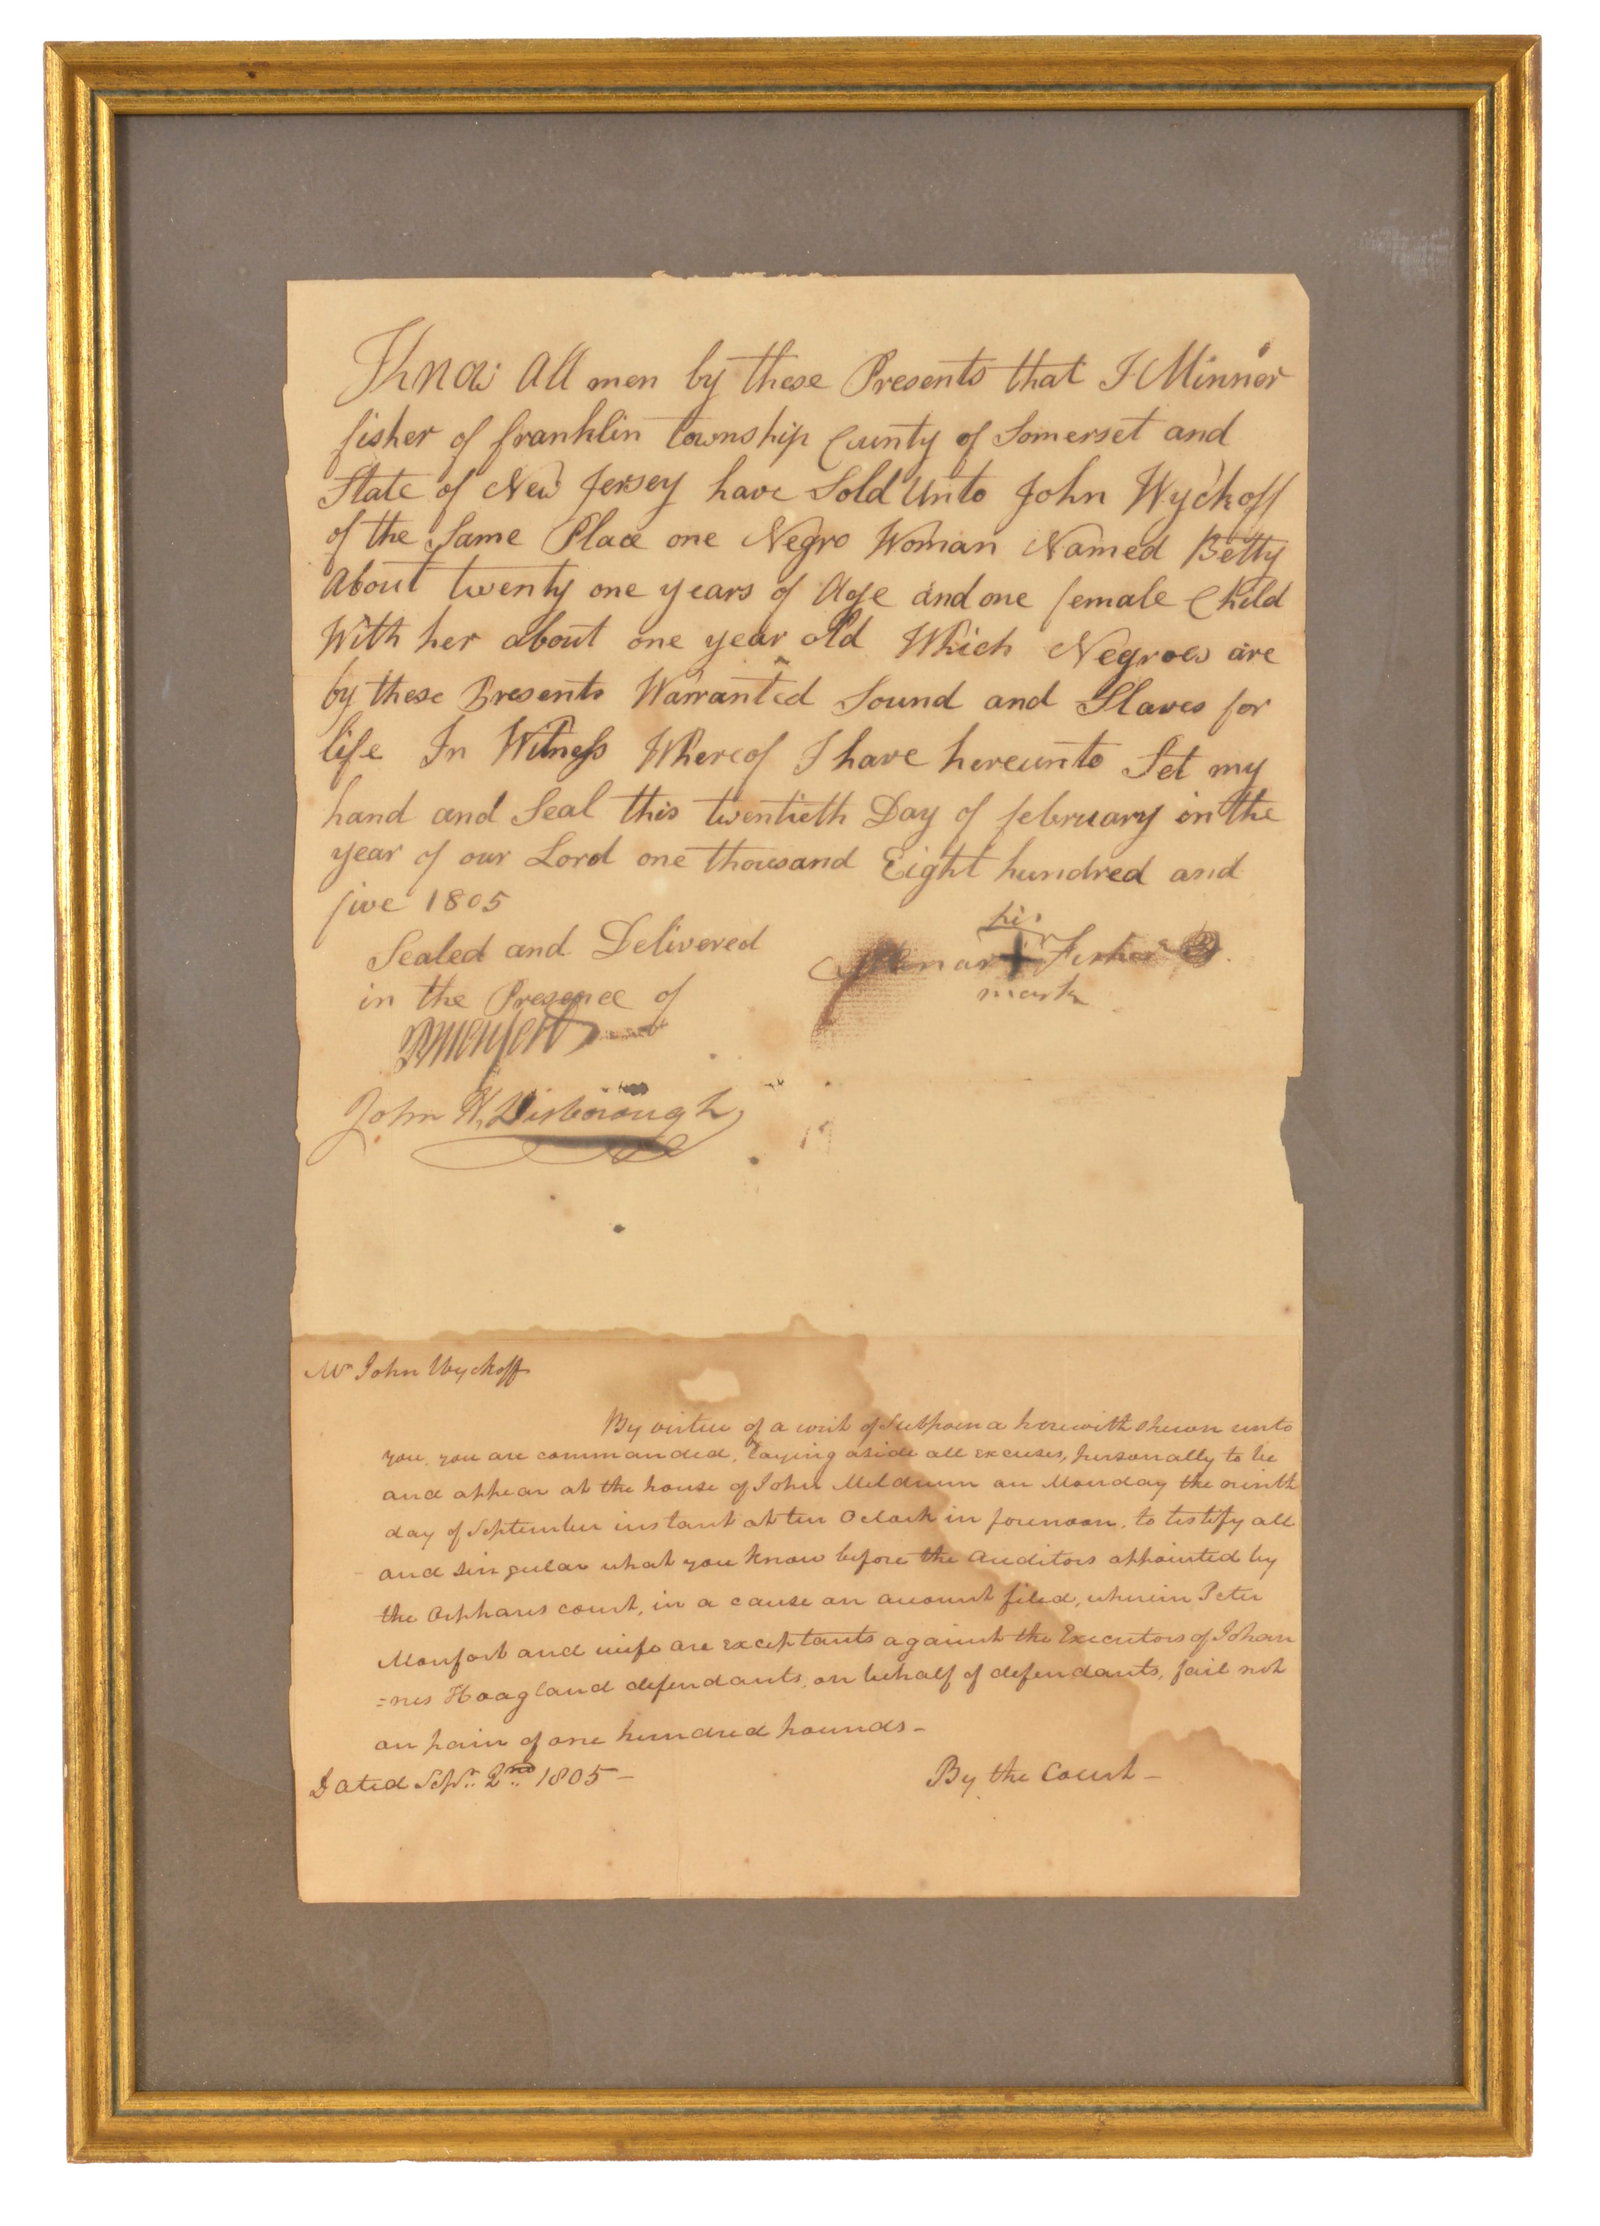 Know all men by these Presents that I Minner
fisher of franklin township County of Somerset and
State of New Jersey have Sold Unto John Wyckoff
of the Same Place one Negro Woman Named Betty
About twenty one years of Age and one female Child
With her about one year old Which Negroes are
by these Presents Warranted Sound and Slaves for
life In Witness Whereof I have hereunto Set my
hand and Seal this twentieth Day of february in the
year of our Lord one thousand Eight hundred and
five 1805
Sealed and Delivered
in the Presence of
his
Fisher
mark
John H. Disborough
Mr John Wyckoff
By virtue of a writ of Subpoena herewith shewn unto
you, you are commanded, laying aside all excuses, personally to be
and appear at the house of John Meldrum on Monday the ninth
day of September instant at ten Oclock in forenoon, to testify all
and singular what you know before the auditors appointed by
the Orphans court, in a cause an account filed, wherein Peter
Monfort and wife are exceptants against the Executors of Johan
=nes Hoagland defendants, on behalf of defendants, fail not
on pain of one hundred pounds-
Dated Sepr. 2nd 1805-
By the Court-